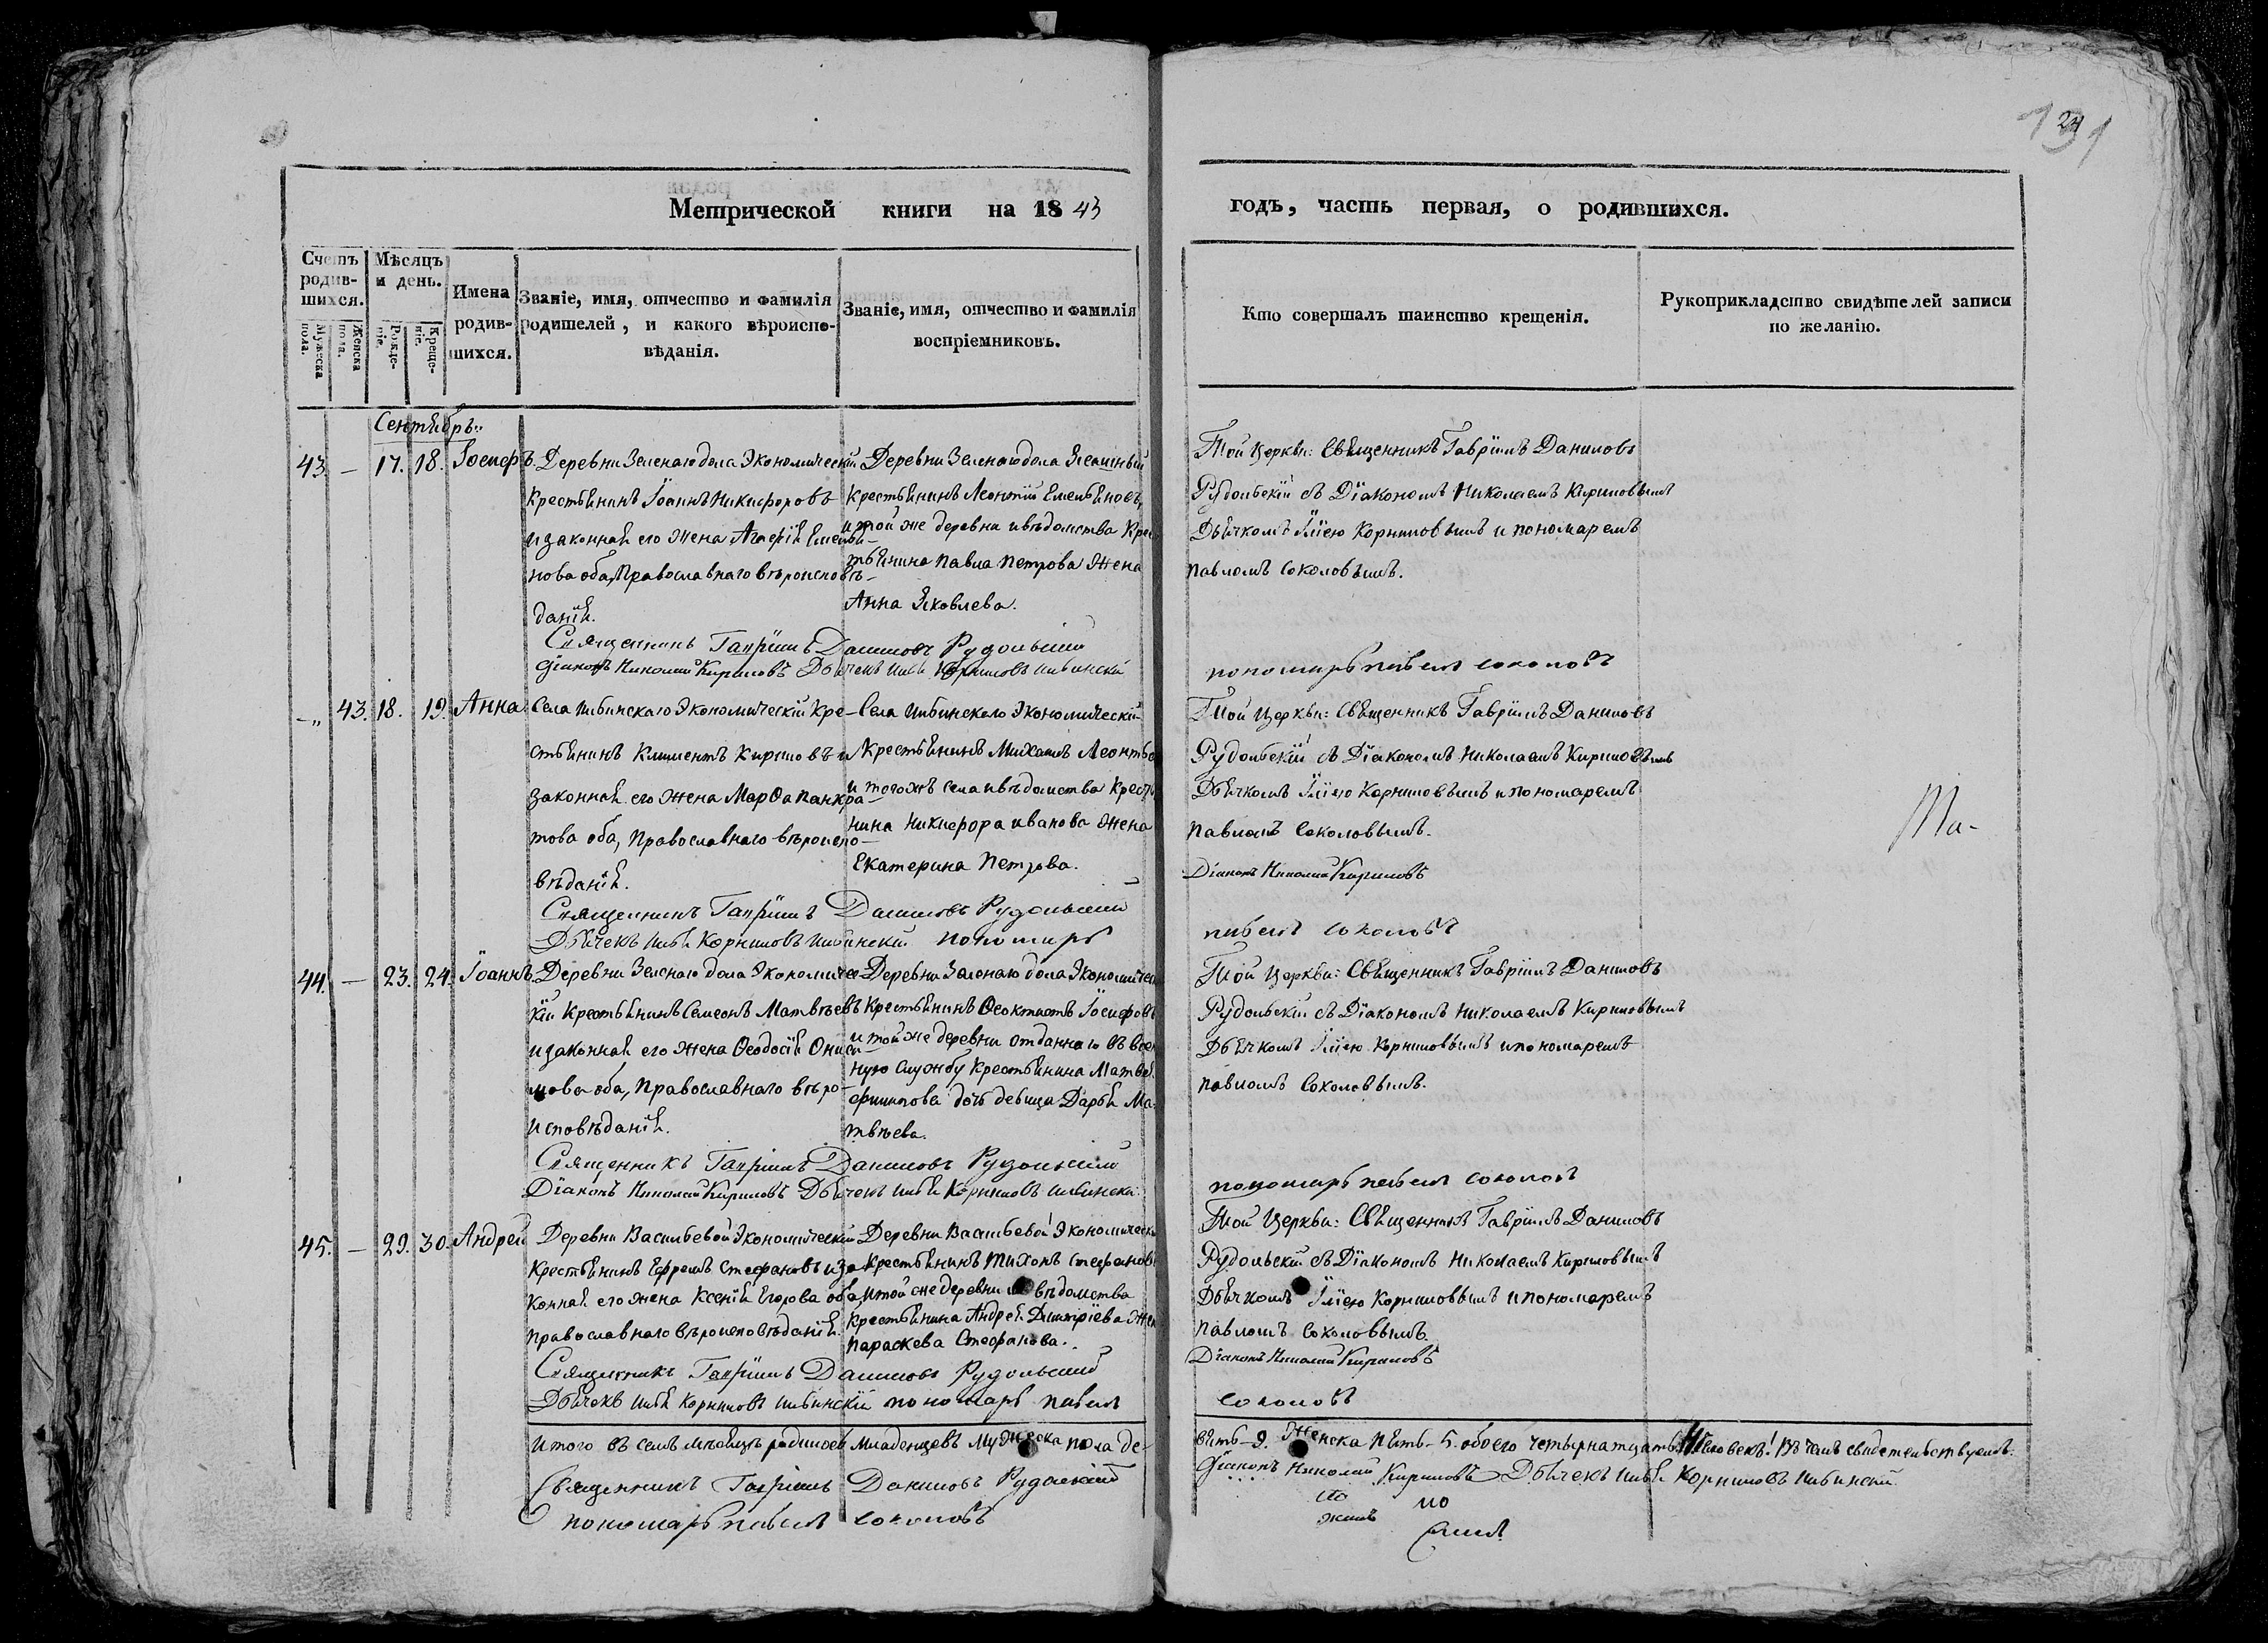 131
24
Метрической книги на 1843
годъ, часть первая, о родившихся.
Счетъ родив-шихся.
Мѣсяцъ и день.
Имена родив-шихся.
Званіе, имя, отчество и фамилія родителей, и какого вѣроиспо-вѣданія.
Званіе, имя, отчество и фамилія воспріемниковъ.
Кто совершалъ таинство крещенія.
Рукоприкладство свидѣтелей записи по желанію.
Мужеска пола.
Женска пола.
Рожде-ніе.
Креще-ніе.
Сентябрь
43. — 17. 18. Іосифъ.
Деревни Зеленаго дола Экономическій
крестьянинъ Іоаннъ Никифоровъ
и законная его жена Агафія Емелья-
нова оба, Православнаго вѣроисповѣ-
данія.
Деревни Зеленаго дола
крестьянинъ Леонтій Емельяновъ,
и той же деревни и вѣдомства Крес
тьянина Павла Петрова Жена
Анна Яковлева.
Той Церкви: Священникъ Гавріилъ Даниловъ
Рудольскій съ Діакономъ Николаемъ Кириловымъ
Дьячкомъ Иліею Корниловымъ и пономаремъ
Павломъ Соколовымъ.
Священникъ Гавріилъ Даниловъ Рудольскій
Діаконъ Николай Кириловъ Дьячекъ Илія Корниловъ Шибинскій
пономарь павелъ соколовъ
— 43. 18. 19. Анна
Села Шибинскаго Экономическій Кре-
стьянинъ Климентъ Кириловъ и
законная его жена Марѳа Панкра-
това оба, Православнаго вѣроиспо-
вѣданія.
Села Шибинскаго Экономическій
Крестьянинъ Михаилъ Леонтье
и тогожъ села и вѣдомства Кресть
нина Никифора Иванова жена
Екатерина Петрова.
Той Церкви: Священникъ Гавріилъ Даниловъ
Рудольскій съ Діакономъ Николаемъ Кириловымъ
Дьячкомъ Иліею Корниловымъ и пономаремъ
Павломъ Соколовымъ.
Діаконъ Николай Кириловъ
Священникъ Гавріилъ Даниловъ Рудольскій
Дьячекъ Илія Корниловъ Шибинскій пономарь
павелъ соколовъ
44. — 23. 24. Іоаннъ.
Деревни Зеленаго дола Экономичес
кій Крестьянинъ Симеонъ Матвѣевъ
и законная его жена Ѳеодосія Ониси-
мова оба, Православнаго вѣро-
исповѣданія.
Деревни Зеленаго дола Экономичес
Крестьянинъ Ѳеоктистъ Іосифовъ
и той же деревни отданнаго въ воен
ную службу Крестьянина Матвея
филипова дочь девица Дарья Ма-
твѣева.
Той Церкви: Священникъ Гавріилъ Даниловъ
Рудольскій съ Діакономъ Николаемъ Кириловымъ
Дьячкомъ Иліею Корниловымъ и пономаремъ
Павломъ Соколовымъ.
Священникъ Гавріилъ Даниловъ Рудольскій
Діаконъ Николай Кириловъ Дьячекъ Илія Корниловъ Шибинскій
пономарь павелъ соколовъ
45. — 29. 30. Андрей
Деревни Васильевой Экономическій
Крестьянинъ Ефремъ Стефановъ и за-
конная его жена Ксенія Егорова оба,
православнаго вѣроисповѣданія.
Деревни Васильевой Экономически
крестьянинъ Тихонъ Стефановъ
и той же деревни и вѣдомства
крестьянина Андрея Димитріева жен
Параскева Стефанова.
Той Церкви: Священникъ Гавріилъ Даниловъ
Рудольскій съ Діакономъ Николаемъ Кириловымъ
Дьячкомъ Иліею Корниловымъ и пономаремъ
Павломъ Соколовымъ.
Діаконъ Николай Кириловъ
Священникъ Гавріилъ Даниловъ Рудольскій
Дьячекъ Илія Корниловъ Шибинскій пономарь павелъ
соколовъ
Итого въ семъ мѣсяцѣ родилось младенцевъ Мужеска пола де-
вять – 9. Женска пять – 5. обоего четырнатцать человекъ! Въ чемъ свидетельствуемъ:
Священникъ Гавріилъ Даниловъ Рудольскій
Діаконъ Николай Кириловъ Дьячекъ Илія Корниловъ Шибинскій
пономарь павелъ соколовъ